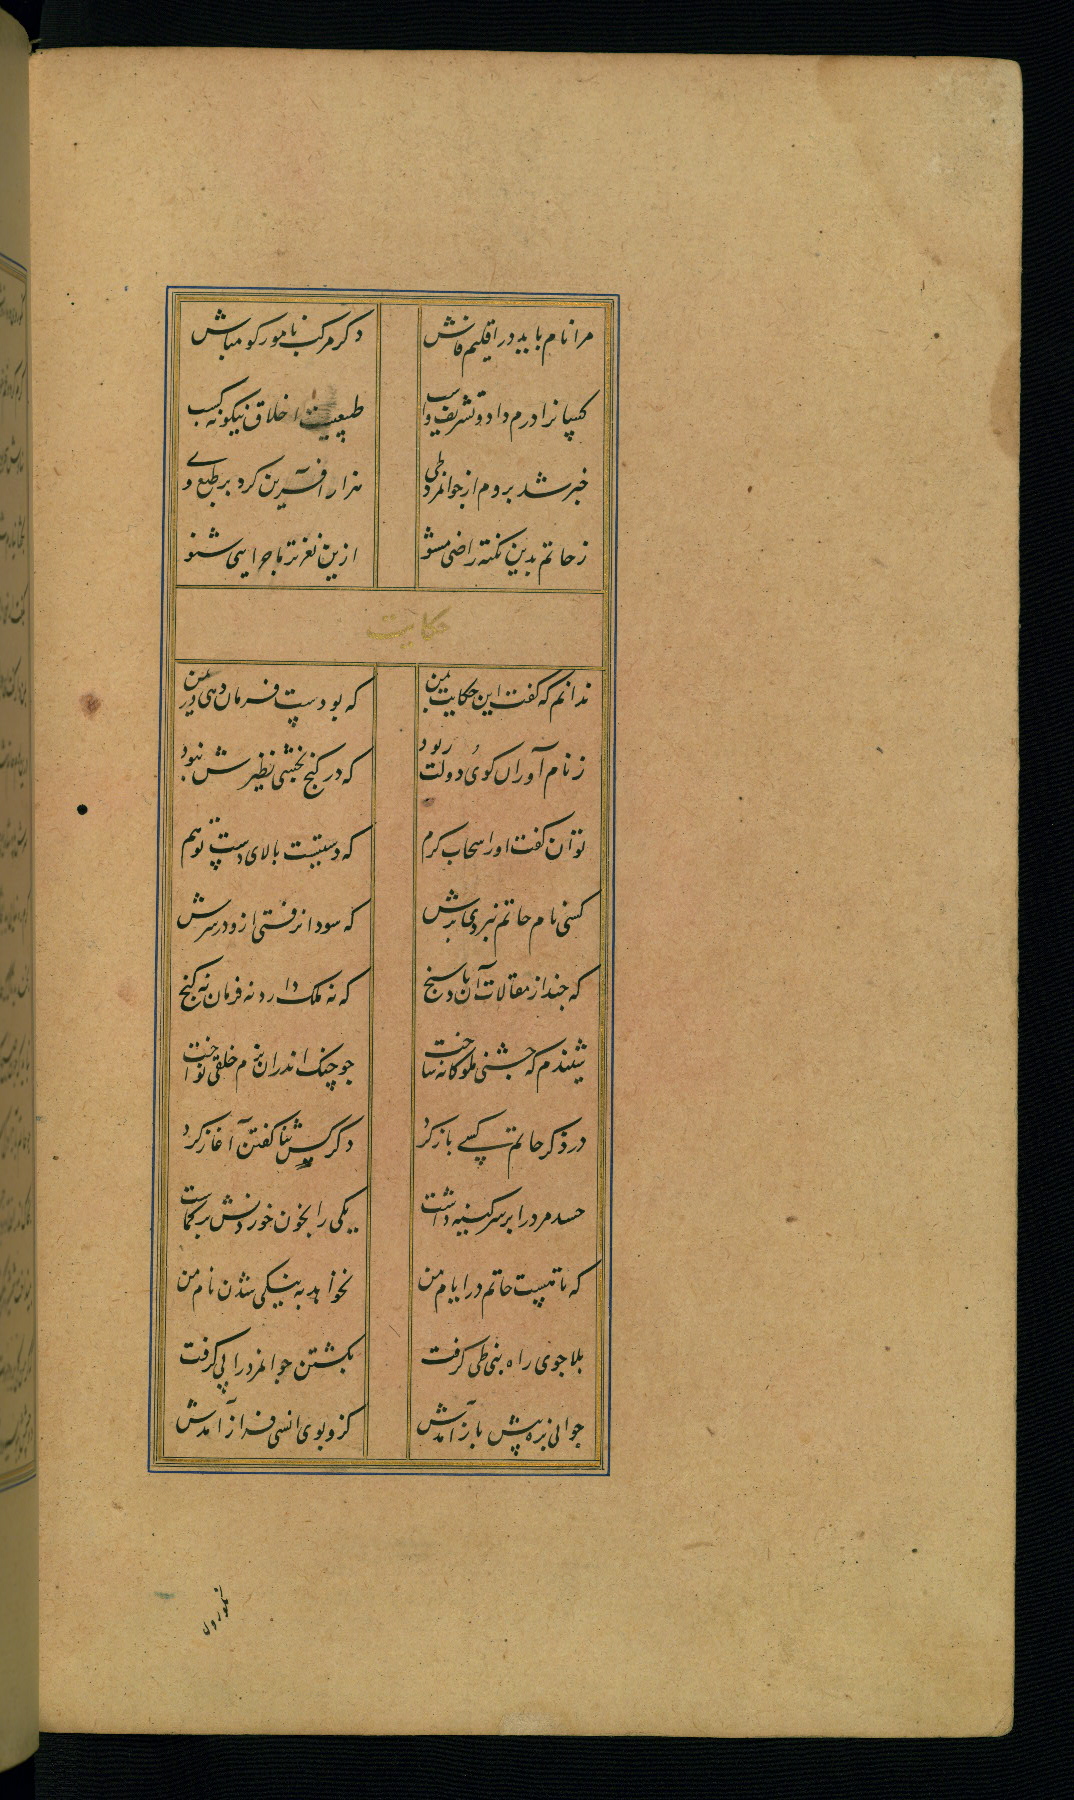 مرا نام باید در اقلیم فاش دگر مرکب نامور کو مباش
کسانرا درم داد و تشریف و اسب طبیعیست اخلاق نیکو نه کسب
خبر شد بروم از جوانمرد طی هزار آفرین کرد بر طبع وے
ز حاتم بدین نکته راضی مشو ازین نغزتر ماجرایی شنو
حکایت
ندانم که گفت این حکایت بمن که بودست فرمان دهی در یمن
ز نام آوران کوی دولت ربود که در کنج بخشی نظیرش نبود
توان گفت اورا سحاب کرم که دستست بالای دست تو هم
کسی نام حاتم نبردی برش که سودا نرفتی ازو در سرش
که چند از مقالات آن بادسنج که نه ملک دارد نه فرمان نه کنج
شنیدم که جشنی ملوکانه ساخت چو چنک اندران بزم خلقی نواخت
در ذکر حاتم کسے باز کرد دگر کس ثنا کفتن آغاز کرد
حسد مرد را بر سر کینه داشت یکی را بخون خوردنش بر کماشت
که تا هست حاتم در ایام من نخواهد به نیکی شدن نام من
بلا جوی راه بنی طی کرفت بکشتن جوانمرد را پی کرفت
جوانی بره پیش باز آمدش کزو بوی انسی فراز آمدش